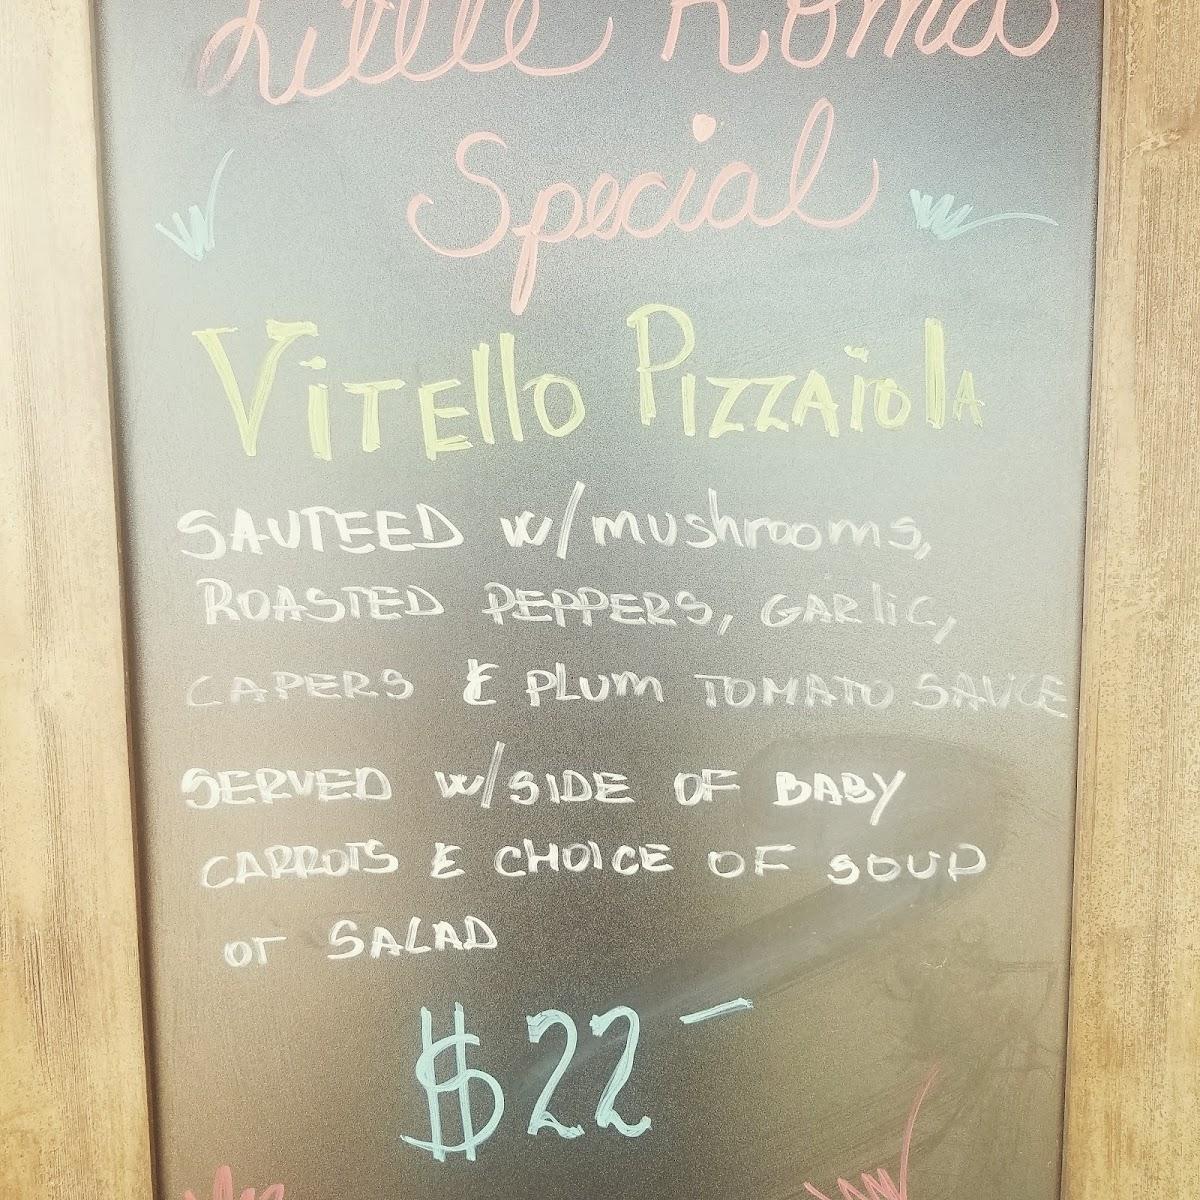 Little Roma
Special
VITEllo PIZZAïolA
SAUTEED w/mushrooms,
ROASTED PEPPERS, GARlic,
CAPERS & PLUM TOMATO SAUCE
SERVED W/SIDE OF BABY
CARROTS & CHOICE OF SOUP
or SALAD
$22-